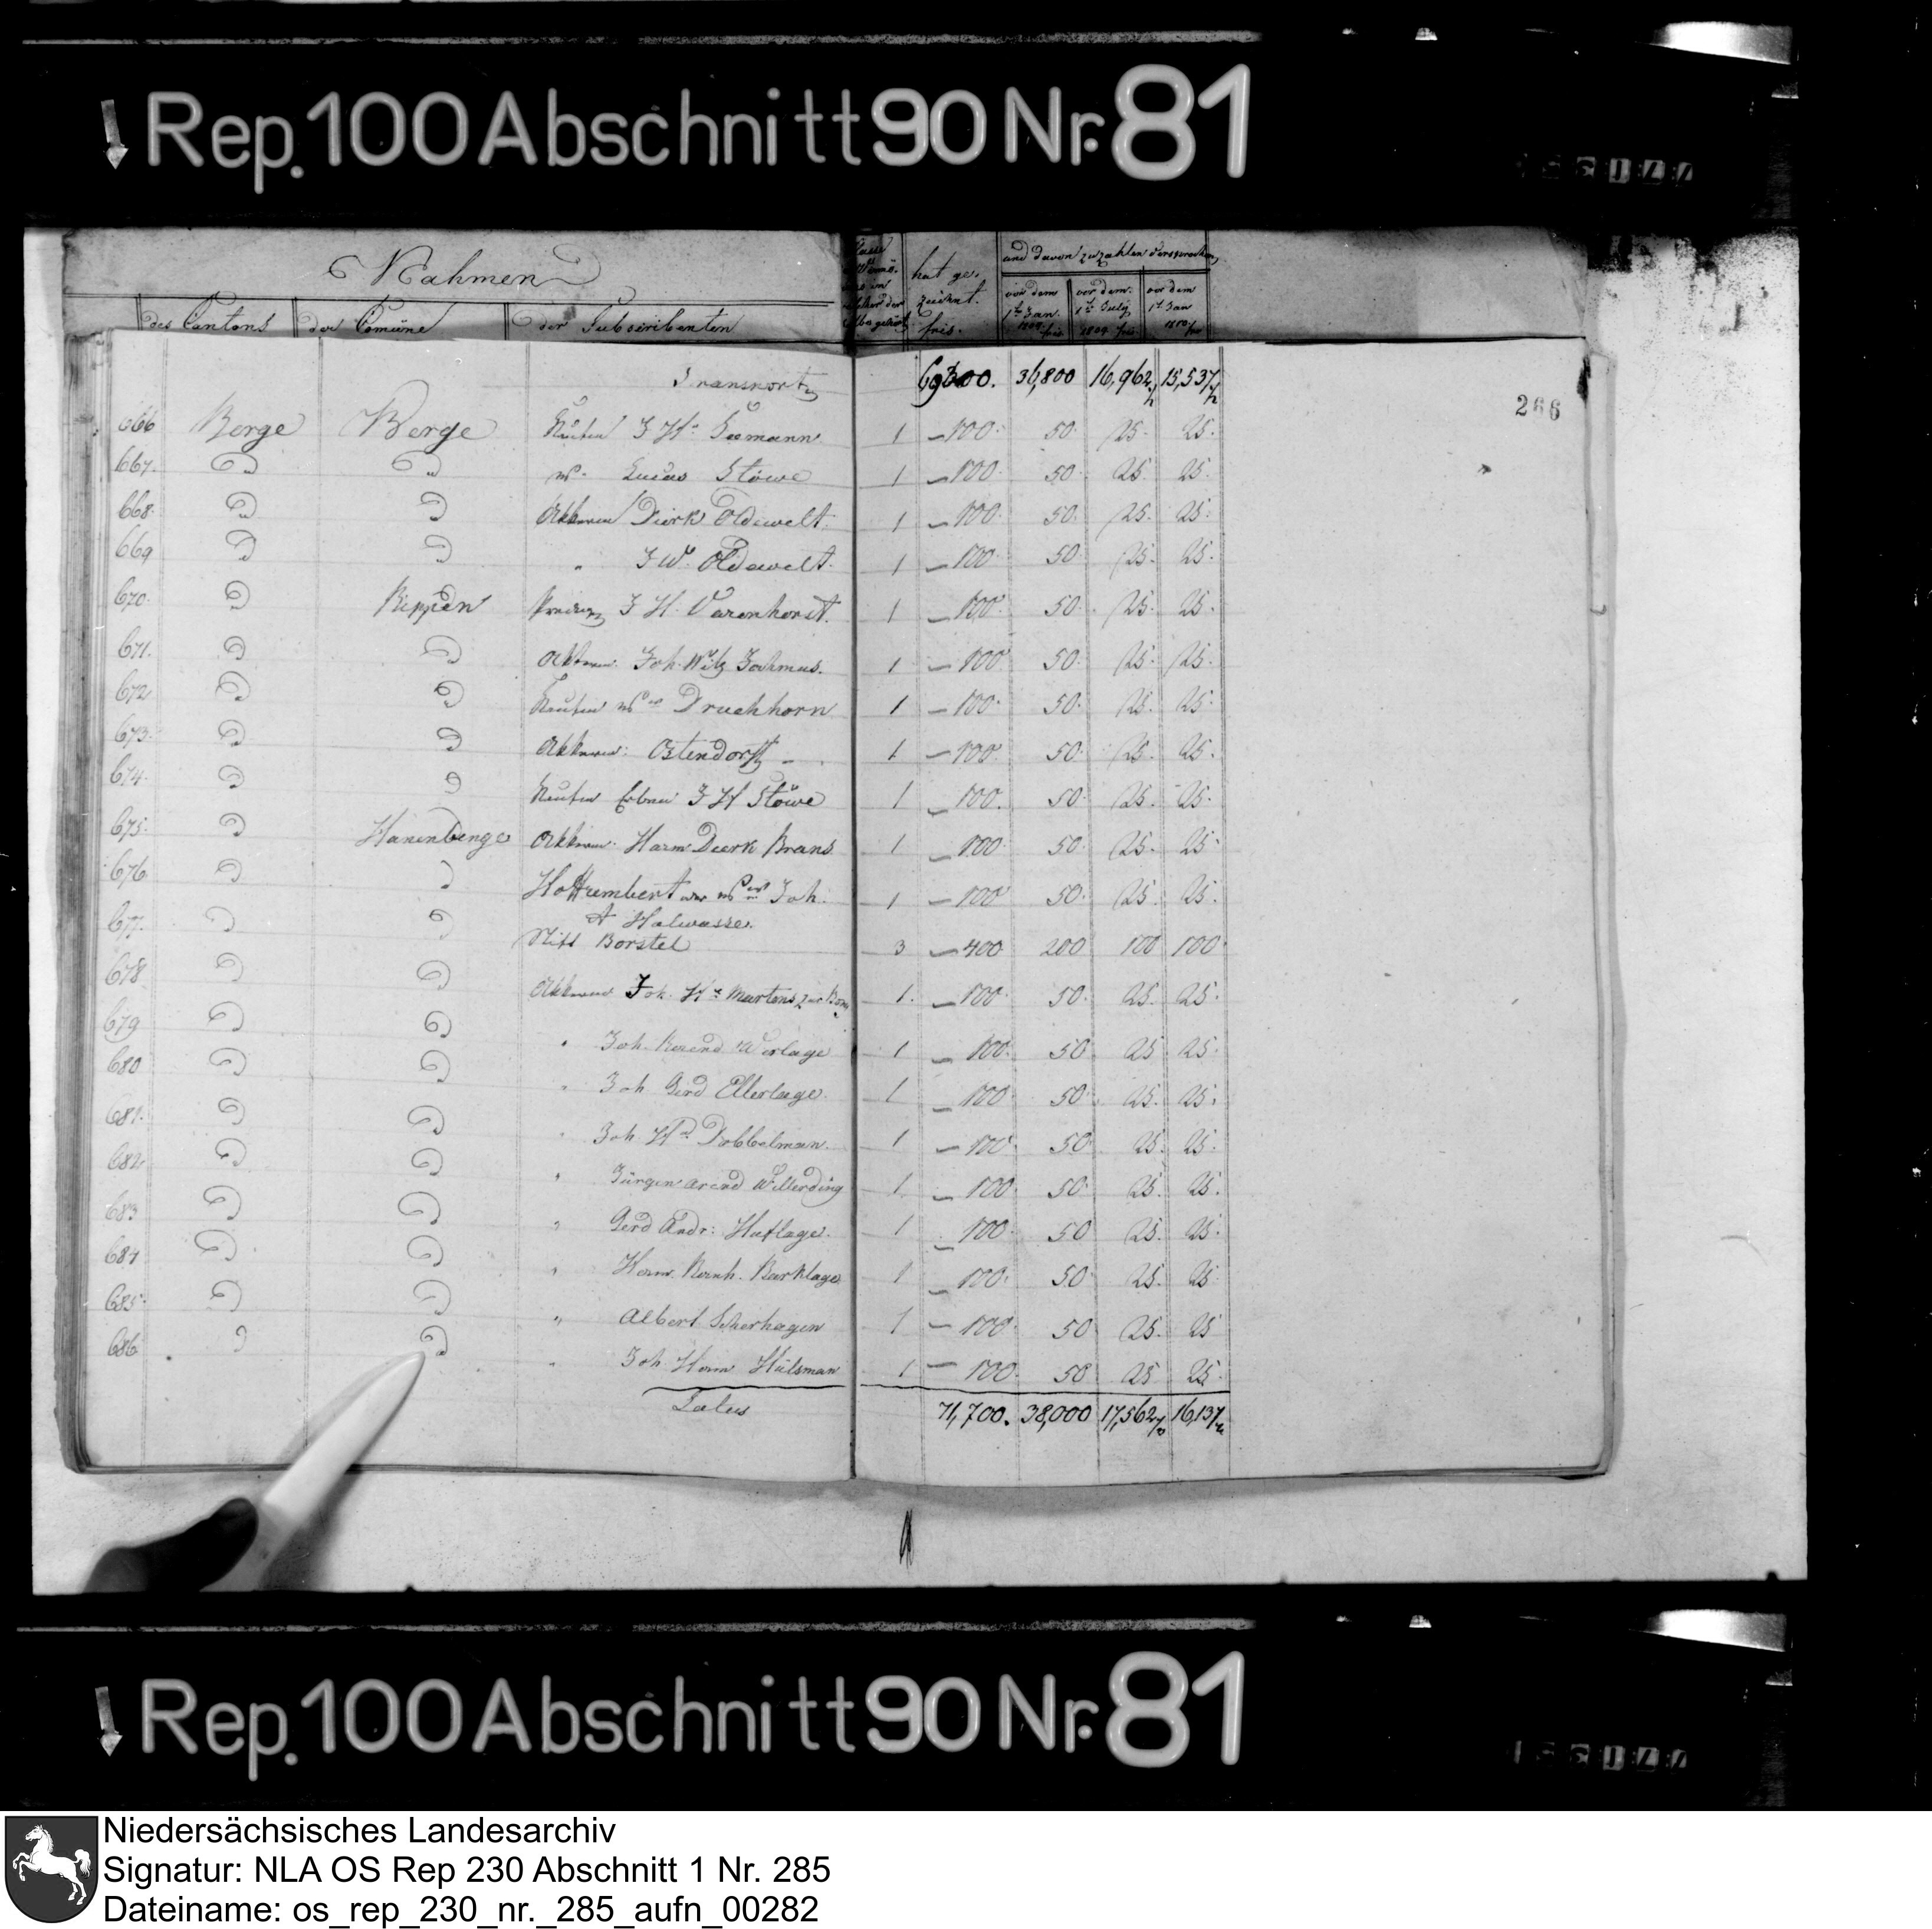 Rep. 100 Abschnitt 90 Nr. 81
Nahmen
des Cantons der Comüne der Subscribenten
hat ge- zeichnt. frcs.
und davon zu zahlen versprochen,
vor dem 1t Jan. 1809. frcs
vor dem 1t July 1809 frcs
vor dem 1t Jan 1810 frcs
Transport 36,800 16,962 1/2 15,537 1/2
266
666 Berge Berge Kaufm J H Seemann 1 - 100. 50. 25. 25.
667. " " Lucas Stöwe 1 - 100. 50. 25. 25.
668. Dierk Oldewelt. 1 - 100. 50. 25. 25.
669 " J W. Oldewelt. 1 - 100. 50. 25. 25.
670. Bippen J H. Varenhorst. 1 - 100. 50. 25. 25.
671. Joh. Jochmus. 1 - 100. 50. 25. 25.
672 Kaufm Druchhorn 1 - 100. 50. 25. 25.
673. Ostendorff 1 - 100. 50. 25. 25.
674. Kaufm J H Stöwe 1 - 100. 50. 25. 25.
675. Hanenberge Harm Dierk Brans. 1 - 100. 50. 25. 25.
676. Joh. 1 - 100 50. 25. 25.
A Halwasse.
677. Stift Borstel 3 - 400 200 100 100.
678 Joh. Martens zur 1. - 100. 50. 25. 25.
679 " Joh. Werlage 1 - 100. 50. 25 25.
680 " Joh Gerd Ellerlage. 1 - 100. 50. 25. 25.
681. " Joh Dobbelman. 1 - 100. 50. 25. 25.
682 " Jürgen Arend Willerding 1 - 100. 50. 25. 25.
683 " Gerd Andr: Haflage. 1 - 100. 50 25. 25.
684 " Herm. Bernh. Barklage 1 - 100. 50. 25. 25.
685. " Albert Scherhagen 1 - 100. 50 25. 25
686 " Joh Herm Hülsman 1 - 100. 50 25 25.
Latus 71,700. 38,000 17,562 1/2 16,137 1/2
Rep. 100 Abschnitt 90 Nr. 81
Niedersächsisches Landesarchiv
Signatur: NLA OS Rep 230 Abschnitt 1 Nr. 285
Dateiname: os_rep_230_nr._285_aufn_00282